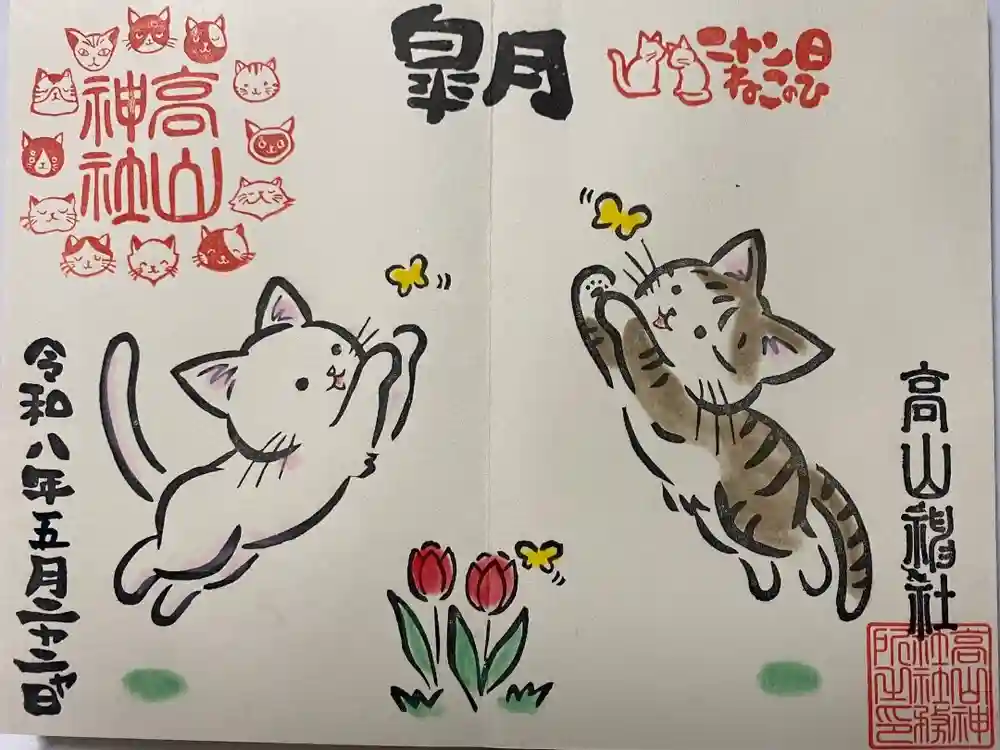 皐月
ニャン日
ねこのひ
高山
神社
高山神社
高山神
社社務
所之印
令和八年五月二十二日